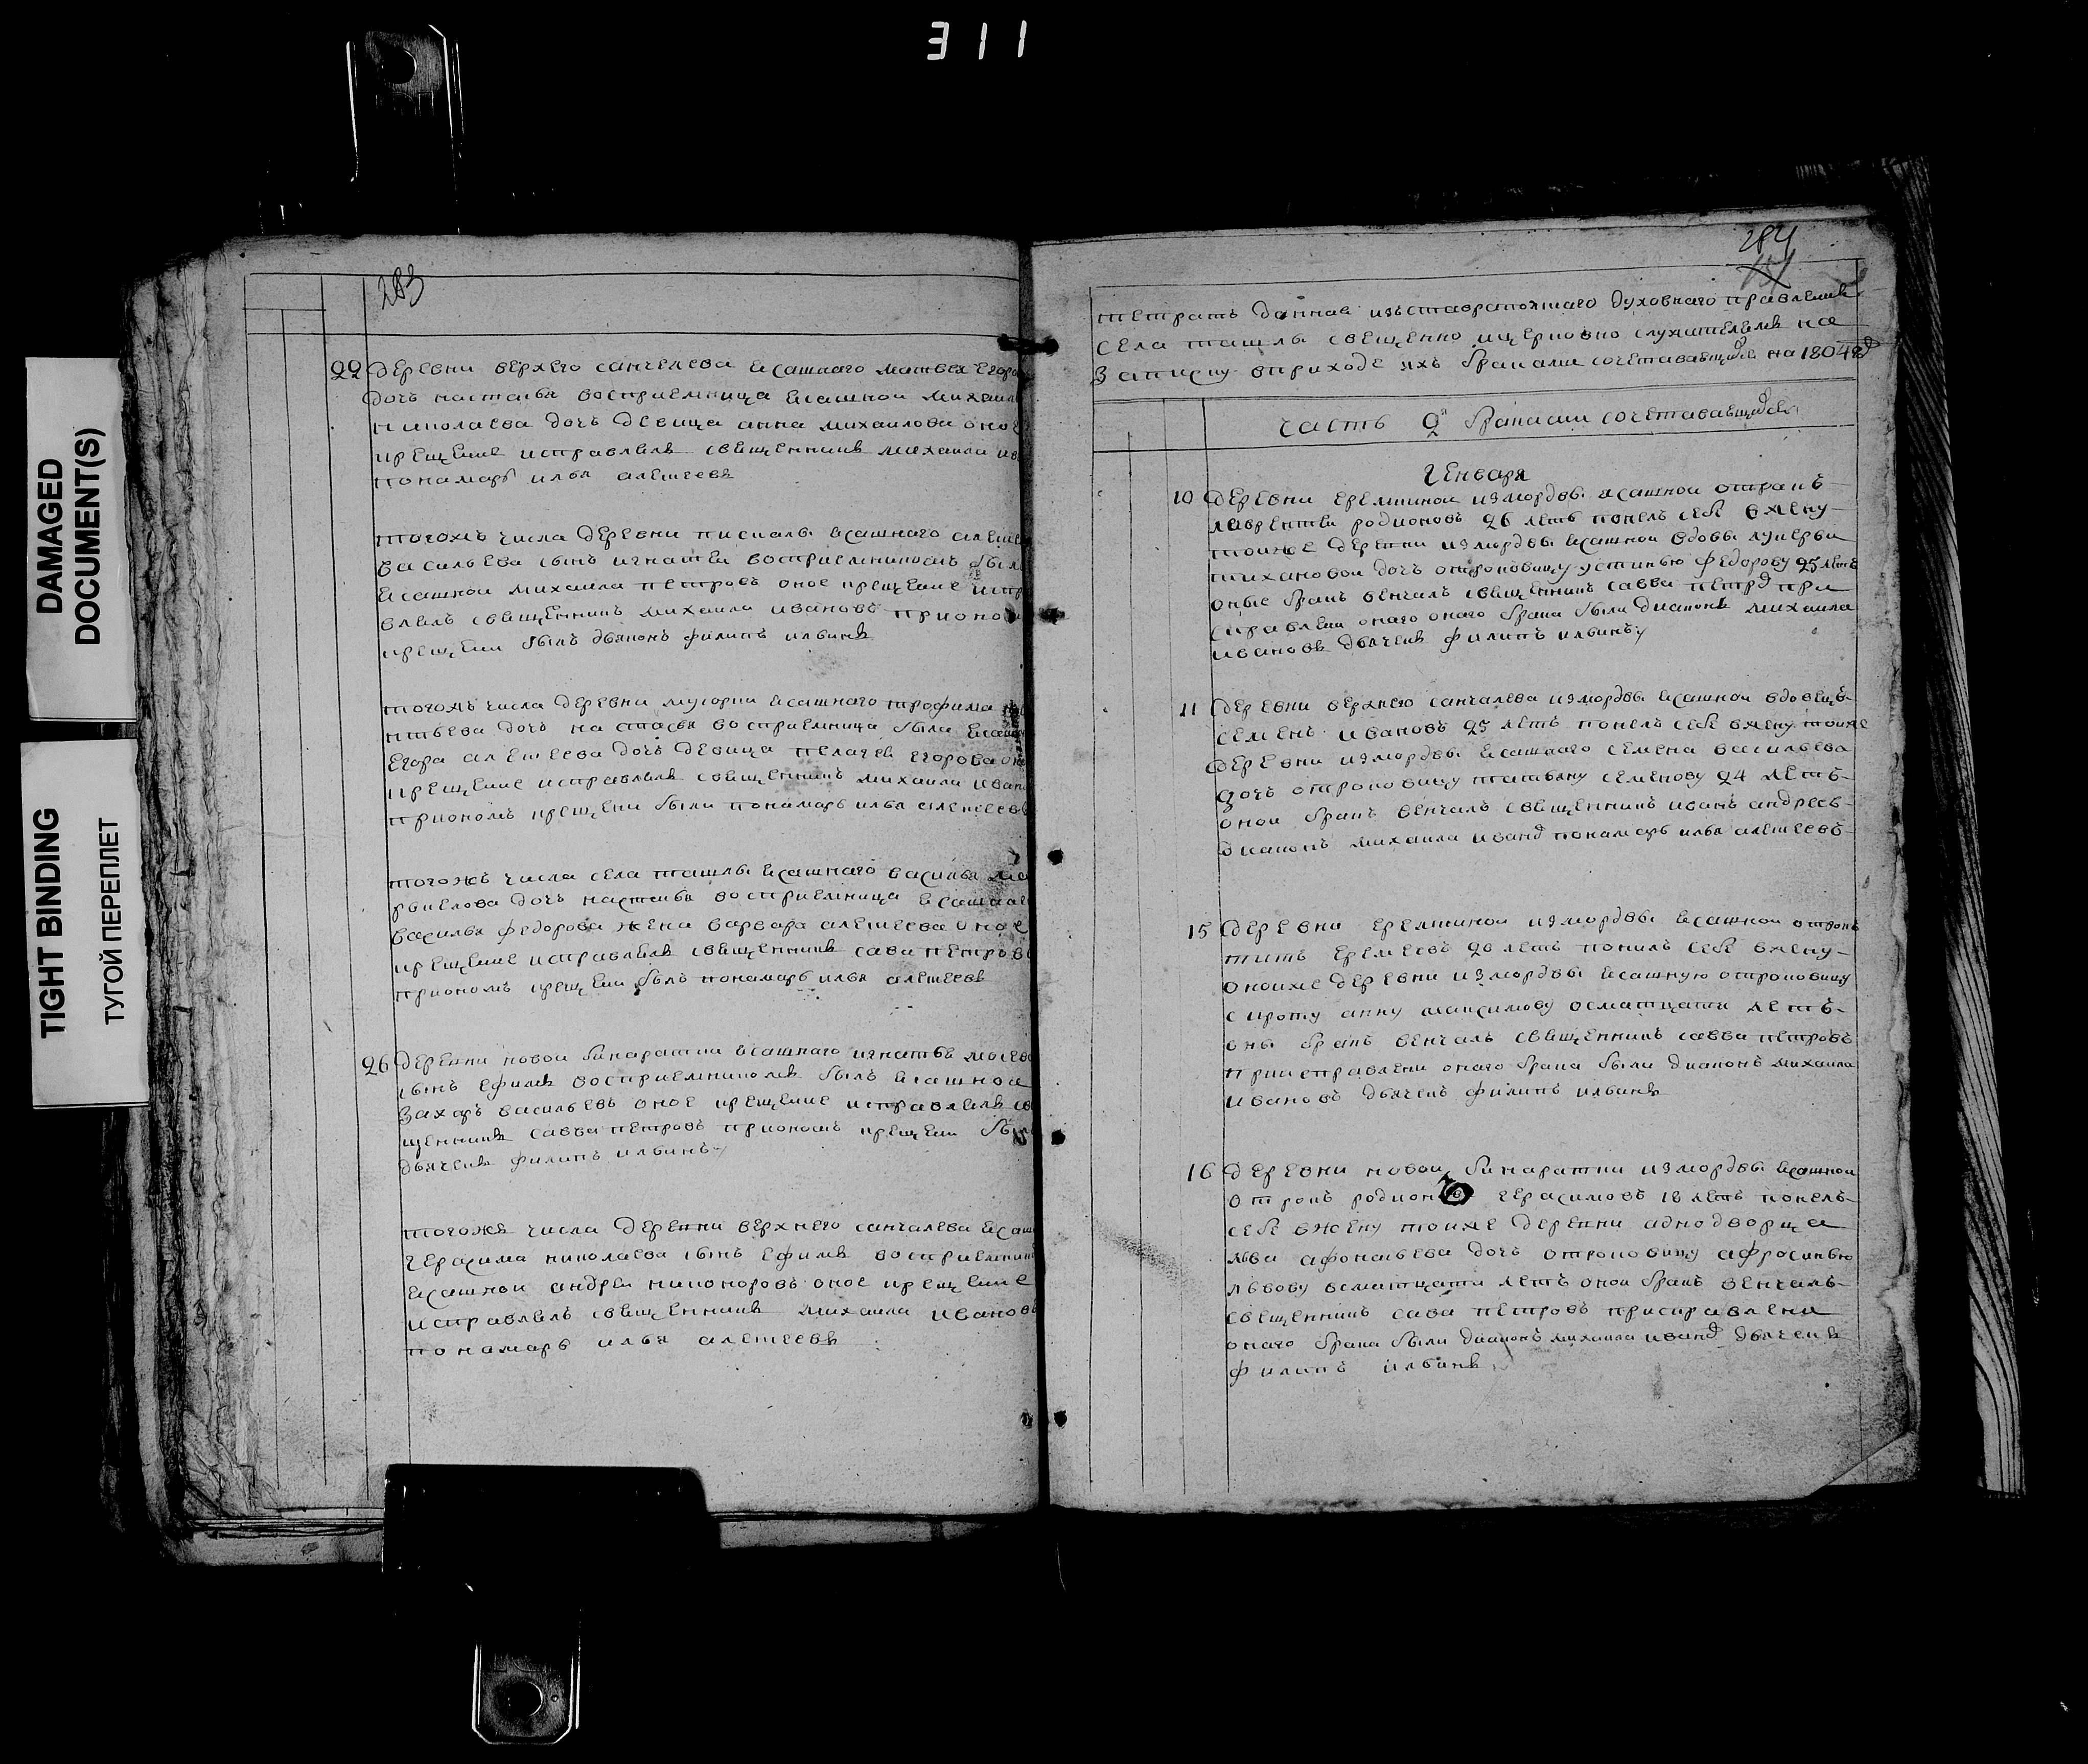 311
DAMAGED
DOCUMENT(S)
TIGHT BINDING
ТУГОЙ ПЕРЕПЛЕТ
283
22 деревни верхего санчелева ясашнаго матвея егора
дочь настасья восприемница ясашной михаила
николаева дочь девица анна михаилова оное
крещение исправлялъ священникъ михаила ив
понамарь илья алексеевъ
тогожъ числа деревни пискалы ясашнаго алексе
васильева сынъ игнатеи восприемникомъ был
ясашнои михаила петровъ оное крещение испр
влялъ священникъ михаила ивановъ приono
крещени былъ дьяконъ филипъ ильинъ
тогожъ числа деревни мусорки ясашнаго трофима
нтьева дочь настасья восприемница была ясашн
егора алексеева дочь девица пелагея егорова он
крещение исправлялъ священникъ михаила иван
приономъ крещени были понамарь илья алексеевъ
тогожъ числа села ташлы ясашнаго василья ма
ркелова дочь настасья восприемница ясашнаг
василья федорова жена варвара алексеева оное
крещение исправлялъ священникъ сава петровъ
приономъ крещении былъ понамарь илья алексеевъ
26 деревни новой бинаратки ясашнаго игнатья мосев
сынъ ефимъ восприемникомъ былъ ясашной
захаръ васильевъ оное крещение исправлялъ св
щенникъ савва петровъ приономъ крещени был
дьячекъ филипъ ильинъ
тогожъ числа деревни верхнего санчалева ясаш
герасима николаева сынъ ефимъ восприемник
ясашной андреи никоноровъ оное крещение
исправлялъ священникъ михаила ивановъ
понамарь илья алексеевъ
284
151
тетрать данная изъ ставрапольшаго духовнаго правления
села ташлы священно ицерковно служителямъ на
записку вприходе ихъ браками сочетавшихся на 1804й
часть 2я браками сочетавшихся
генваря
10 деревни еремкиной измордвы ясашной отрокъ
лаврентеи родионовъ 26 летъ понелъ себе вжену
тоиже деревни измордвы ясашной вдовы лукерьи
тихановой дочь отроковицу устинью федорову 25 летъ
оные бракъ венчалъ священникъ савва петро при
справлени онаго онаго брака были диаконъ михаила
ивановъ дьячекъ филипъ ильинъ
11 деревни верхнего санчалева измордвы ясашной вдовецъ
семенъ ивановъ 25 летъ понелъ себе вжену тоиже
деревни измордвы ясашнаго семена васильева
дочь отроковицу татьяну семенову 24 летъ
оной бракъ венчалъ священникъ иванъ андреевъ
диаконъ михаила иванов понамарь илья алексеевъ
15 деревни еремкиной измордвы ясашной отрокъ
титъ еремеевъ 20 летъ понялъ себе вжену
оноиже деревни измордвы ясашную отроковицу
сироту анну максимову осматцати летъ
оны бракъ венчалъ священникъ савва петровъ
приисправлени онаго брака были диаконъ михаила
ивановъ дьячекъ филипъ ильинъ
16 деревни новой бинаратки измордвы ясашной
отрокъ родионъ герасимовъ 18 летъ понелъ
себе вжену тоиже деревни аднодворца
льва афонасьева дочь отроковицу афросинью
львову всематцати летъ оной бракъ венчалъ
священникъ сава петровъ присправлени
онаго брака были диаконъ михаила иванов дьячекъ
филипъ ильинъ